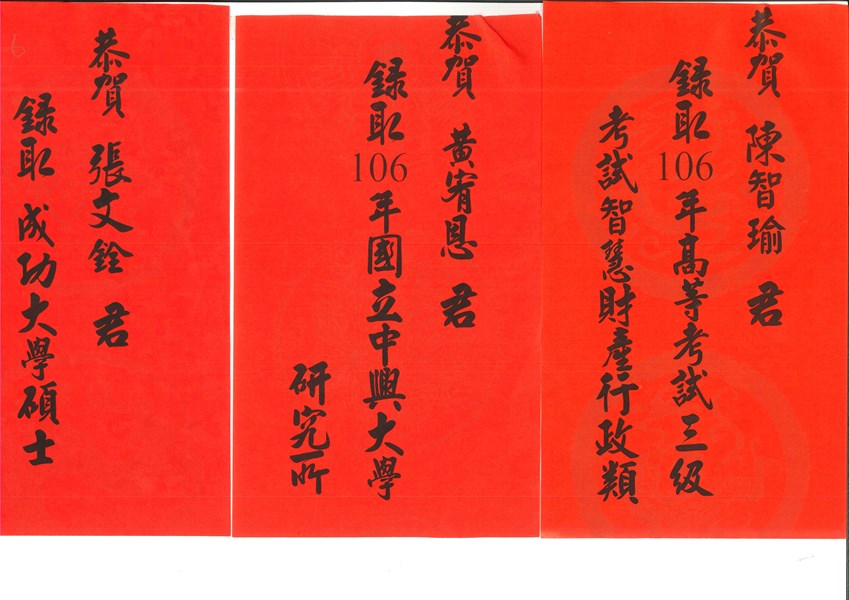 恭賀 陳智瑜 君
錄取106年高等考試三級
考試智慧財產行政類
恭賀 黃宥恩 君
錄取106年國立中興大學
研究所
恭賀 張文銓 君
錄取 成功大學碩士